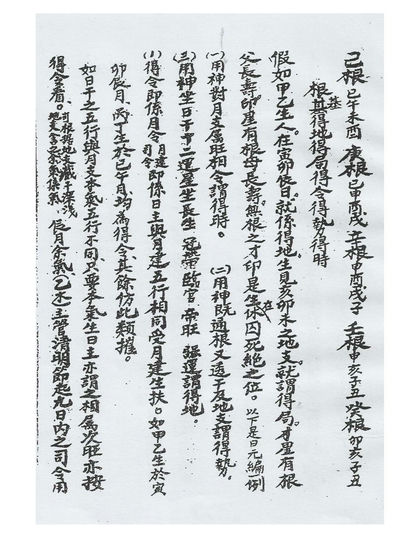 己根 巳午未酉 庚根 巳申酉戌 辛根 申酉戌子 壬根 申亥子丑 癸根 卯亥子丑
根基 得地得局得令得勢得時
假如甲乙生人。在寅卯時日。就係得地。生見亥卯未之地支。就謂得局。才星有根
父長壽。印星有根母長壽。無根之才印是生在休囚死絕之位。以下是日元編一例
(一)用神對月支屬旺相令謂得時。 (二)用神既通根又透干及地支謂得勢。
(三)用神生日干十二運星生長生 冠帶臨官 帝旺 強運謂得地。
(1)得令即係月令月建司令即係日主與月建五行相同受月建生扶。如甲乙生於寅
卯辰月、丙丁生於巳午月、均為得令、其餘仿此類推。
如日干之五行與月支本氣五行不同、只要本氣生日主亦謂之相屬次旺亦按
得令看。司根得地支藏干深淺 地支含余氣係氣、辰月余氣(乙木)主管清明節起九日內之司令用